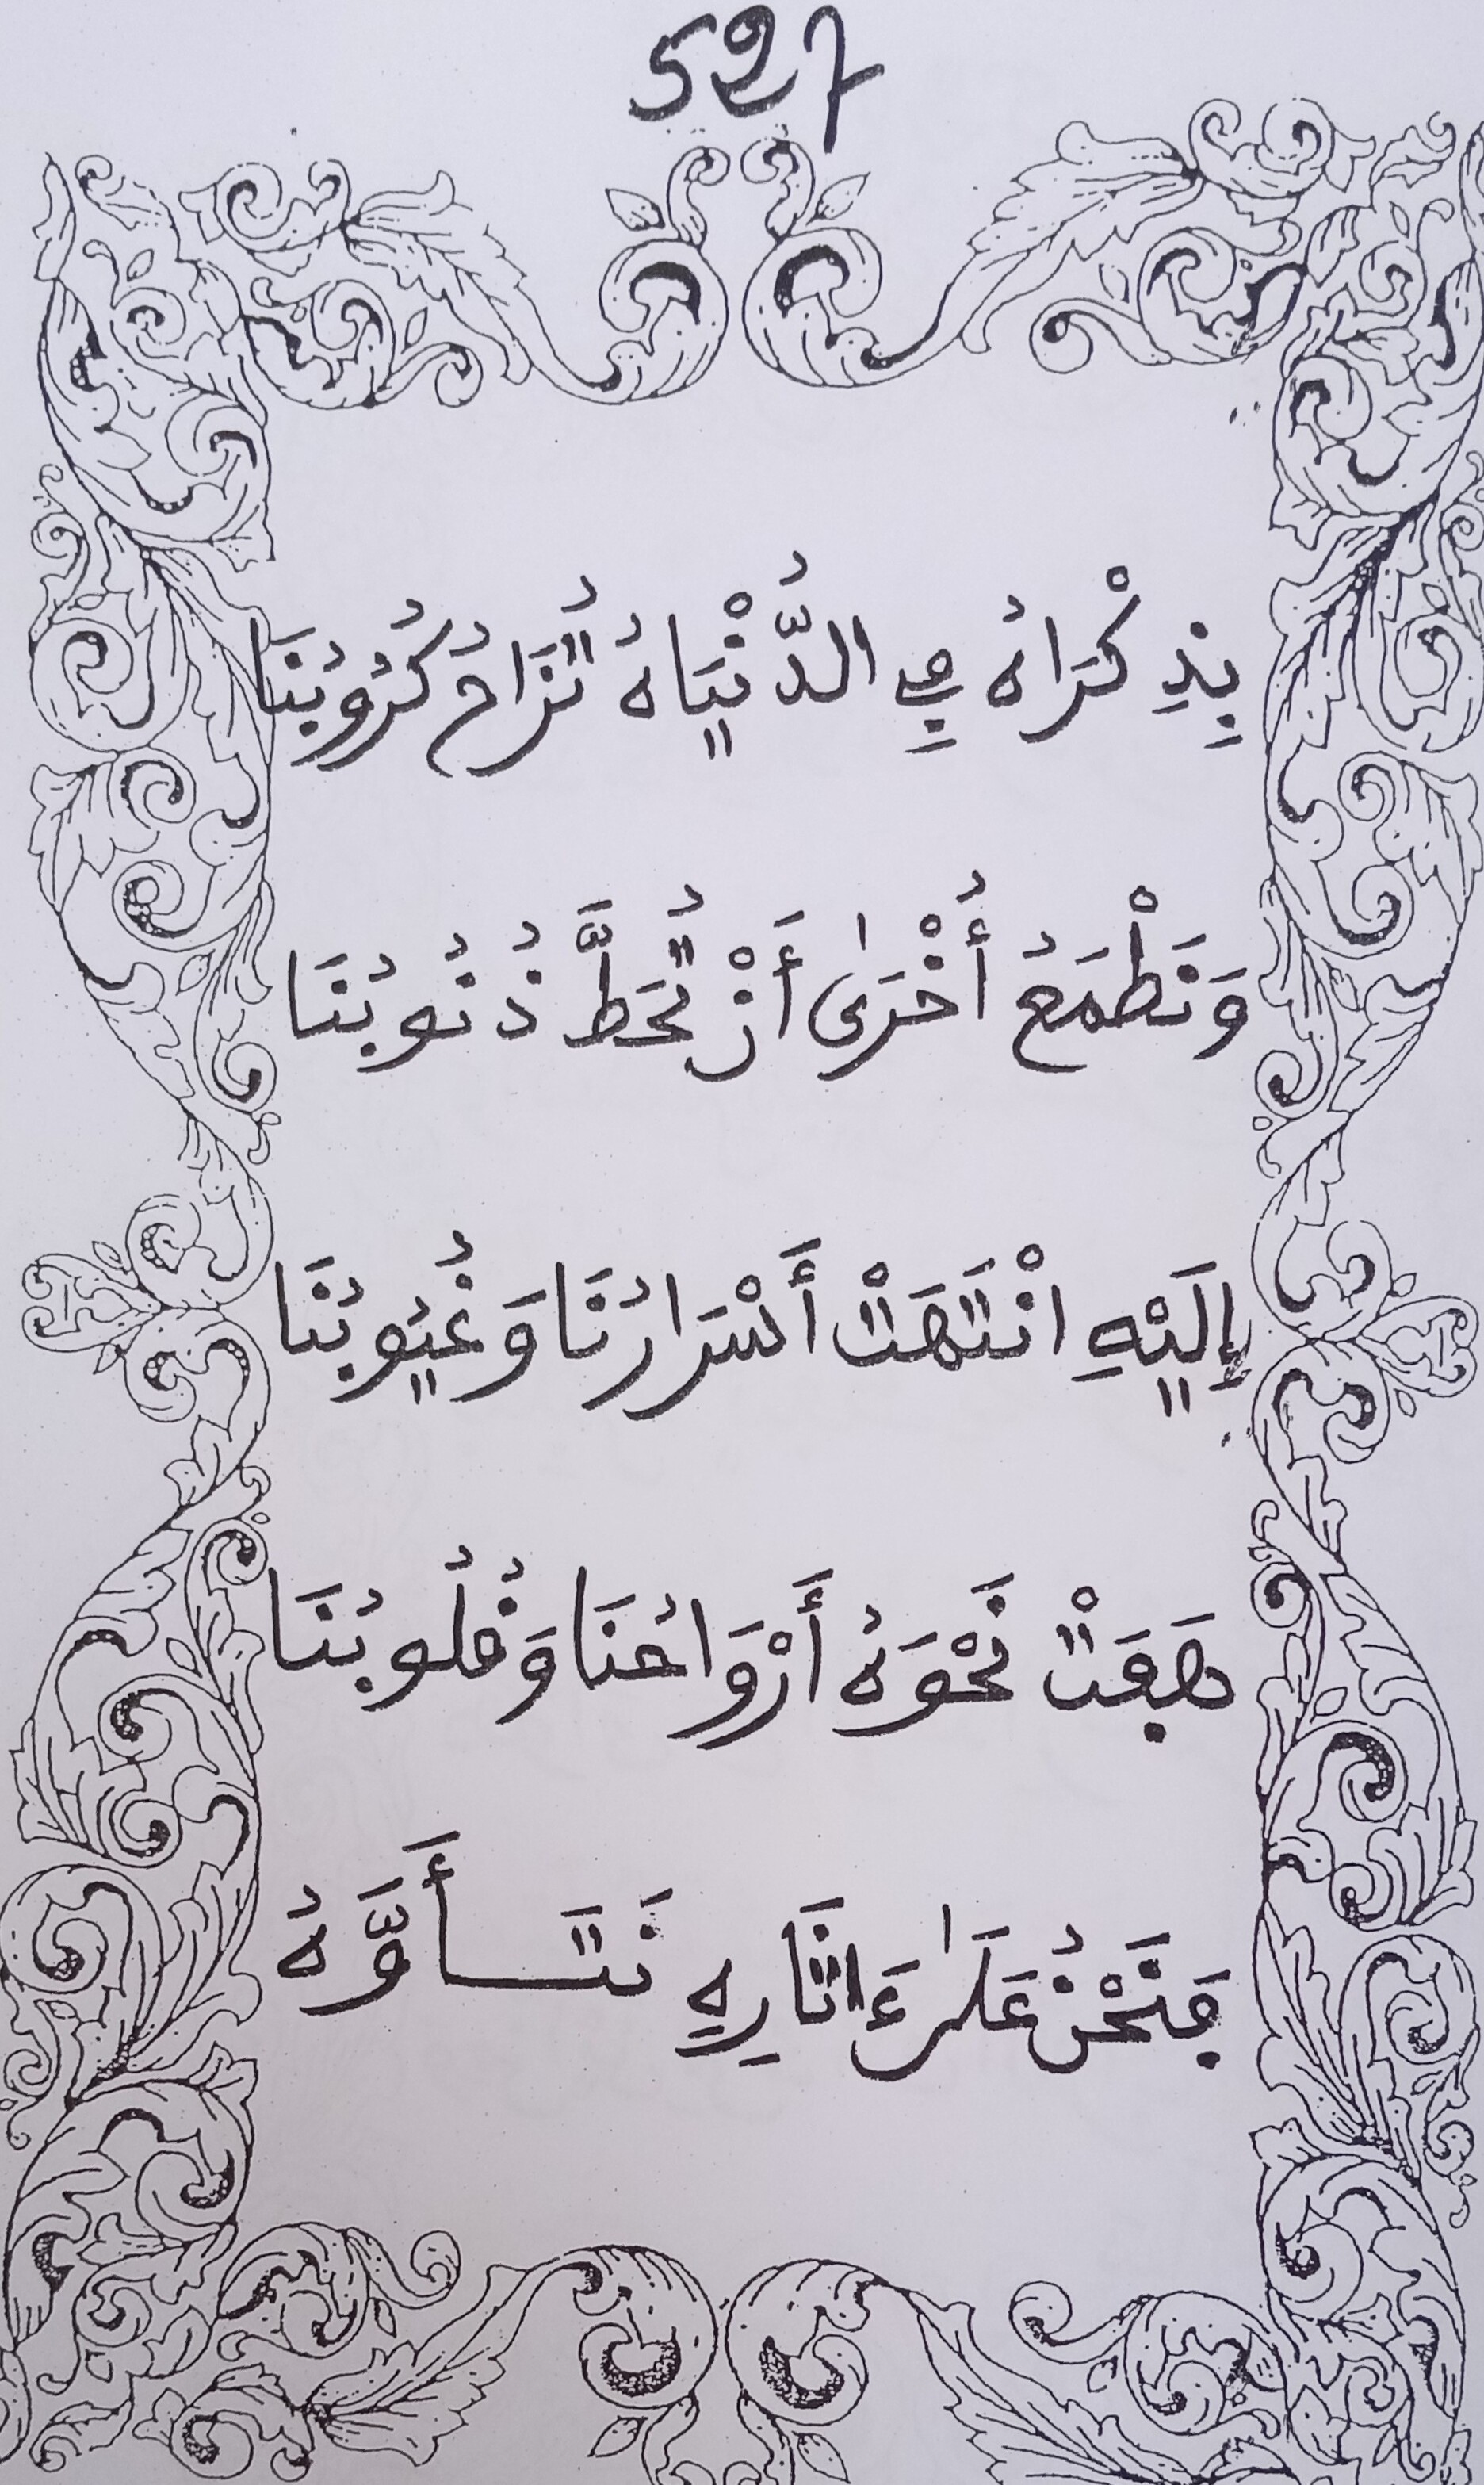 527
بِذِكْرَاهُ فِي الدُّنْيَاهُ تُزَاحُ كُرُوبُنَا
وَنَطْمَعُ أُخْرَىٰ أَنْ تُحَطَّ ذُنُوبُنَا
إِلَيْهِ انْتَهَتْ أَسْرَارُنَا وَغُيُوبُنَا
هَفَتْ نَحْوَهُ أَرْوَاحُنَا وَقُلُوبُنَا
فَنَحْنُ عَلَىٰ ءَاثَارِهِ نَتَـــأَوَّهُ